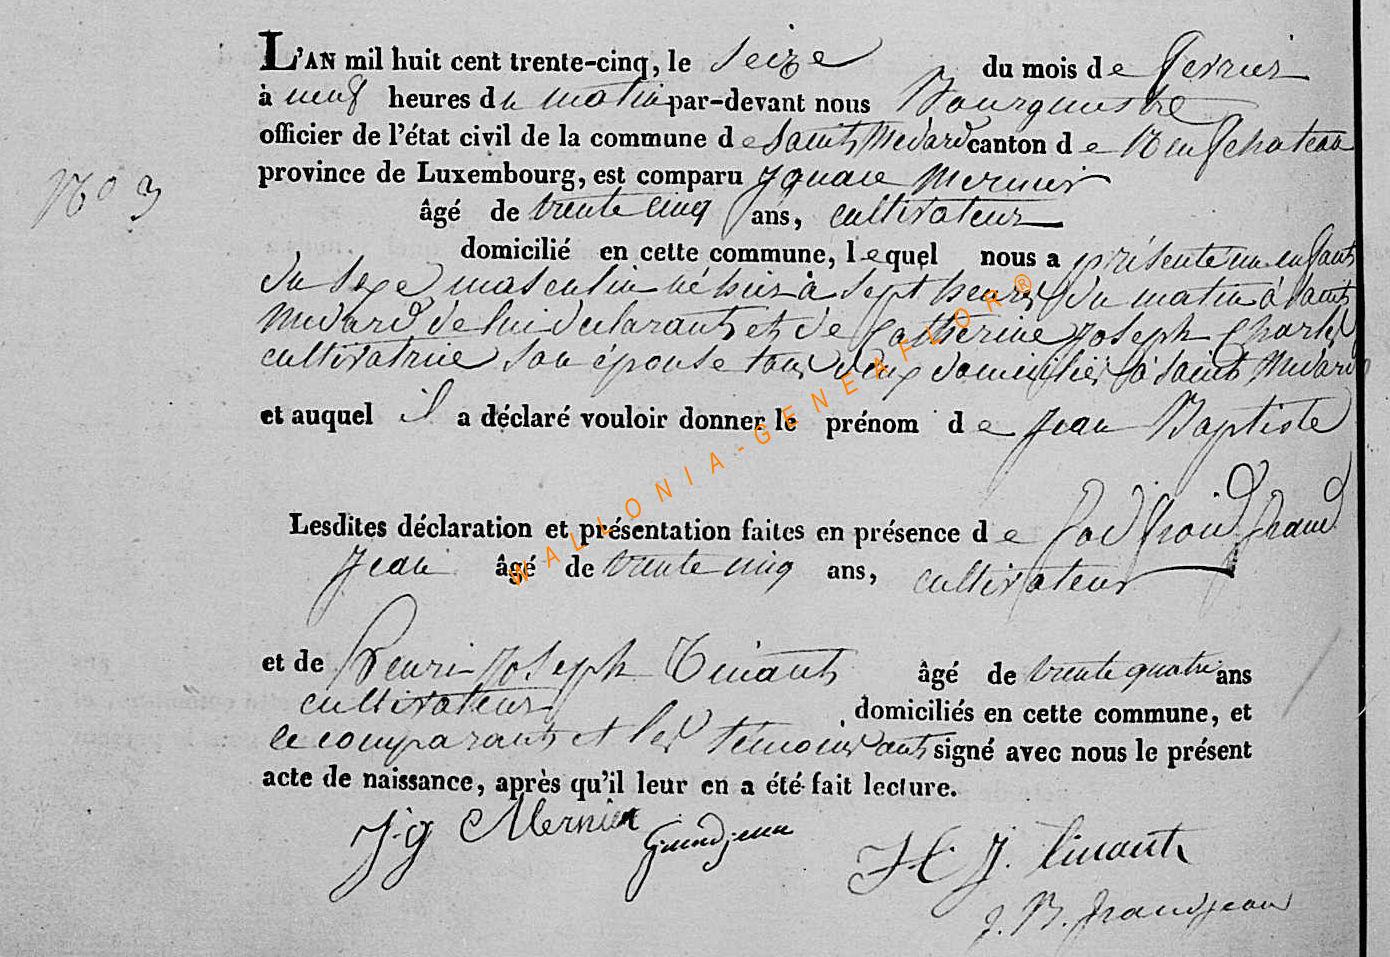 L'AN mil huit cent trente-cinq, le seize du mois de fevrier
à neuf heures du matin par-devant nous Bourgmestre
officier de l'état civil de la commune de Saint Medard canton de Neufchateau
province de Luxembourg, est comparu Ignace Mernier
No 3
âgé de trente cinq ans, cultivateur
domicilié en cette commune, lequel nous a présenté un enfant
du sexe masculin né hier à sept heures du matin à Saint
Medard de lui declarant et de Catherine Joseph Charles
cultivatrice son épouse tous deux domiciliés à Saint Medard
et auquel il a déclaré vouloir donner le prénom de Jean Baptiste
Lesdites déclaration et présentation faites en présence de Godfroid Grand
Jean âgé de trente cinq ans, cultivateur
et de Henri Joseph Tinant âgé de trente quatre ans
cultivateur, domiciliés en cette commune, et
le comparant et les temoins ont signé avec nous le présent
acte de naissance, après qu'il leur en a été fait lecture.
Jg Mernier Grandjean H J. Tinant
J. B. Grandjean
WALLONIA-GENEAFLOR®